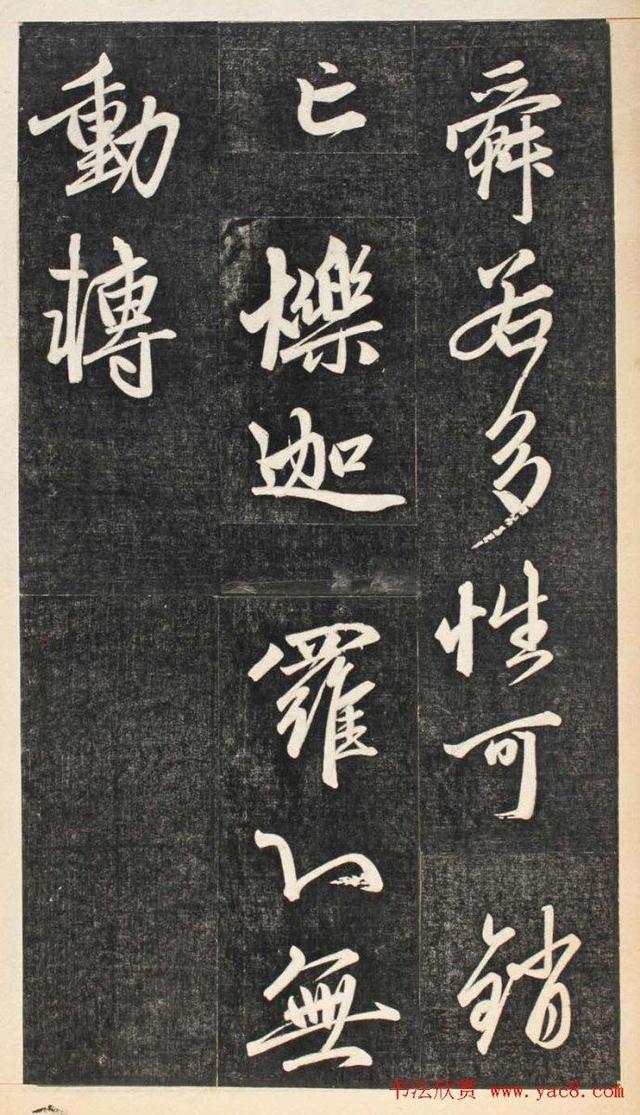 舜若多性可銷
亡爍迦羅心無
動轉
书法欣赏 www.yac8.com